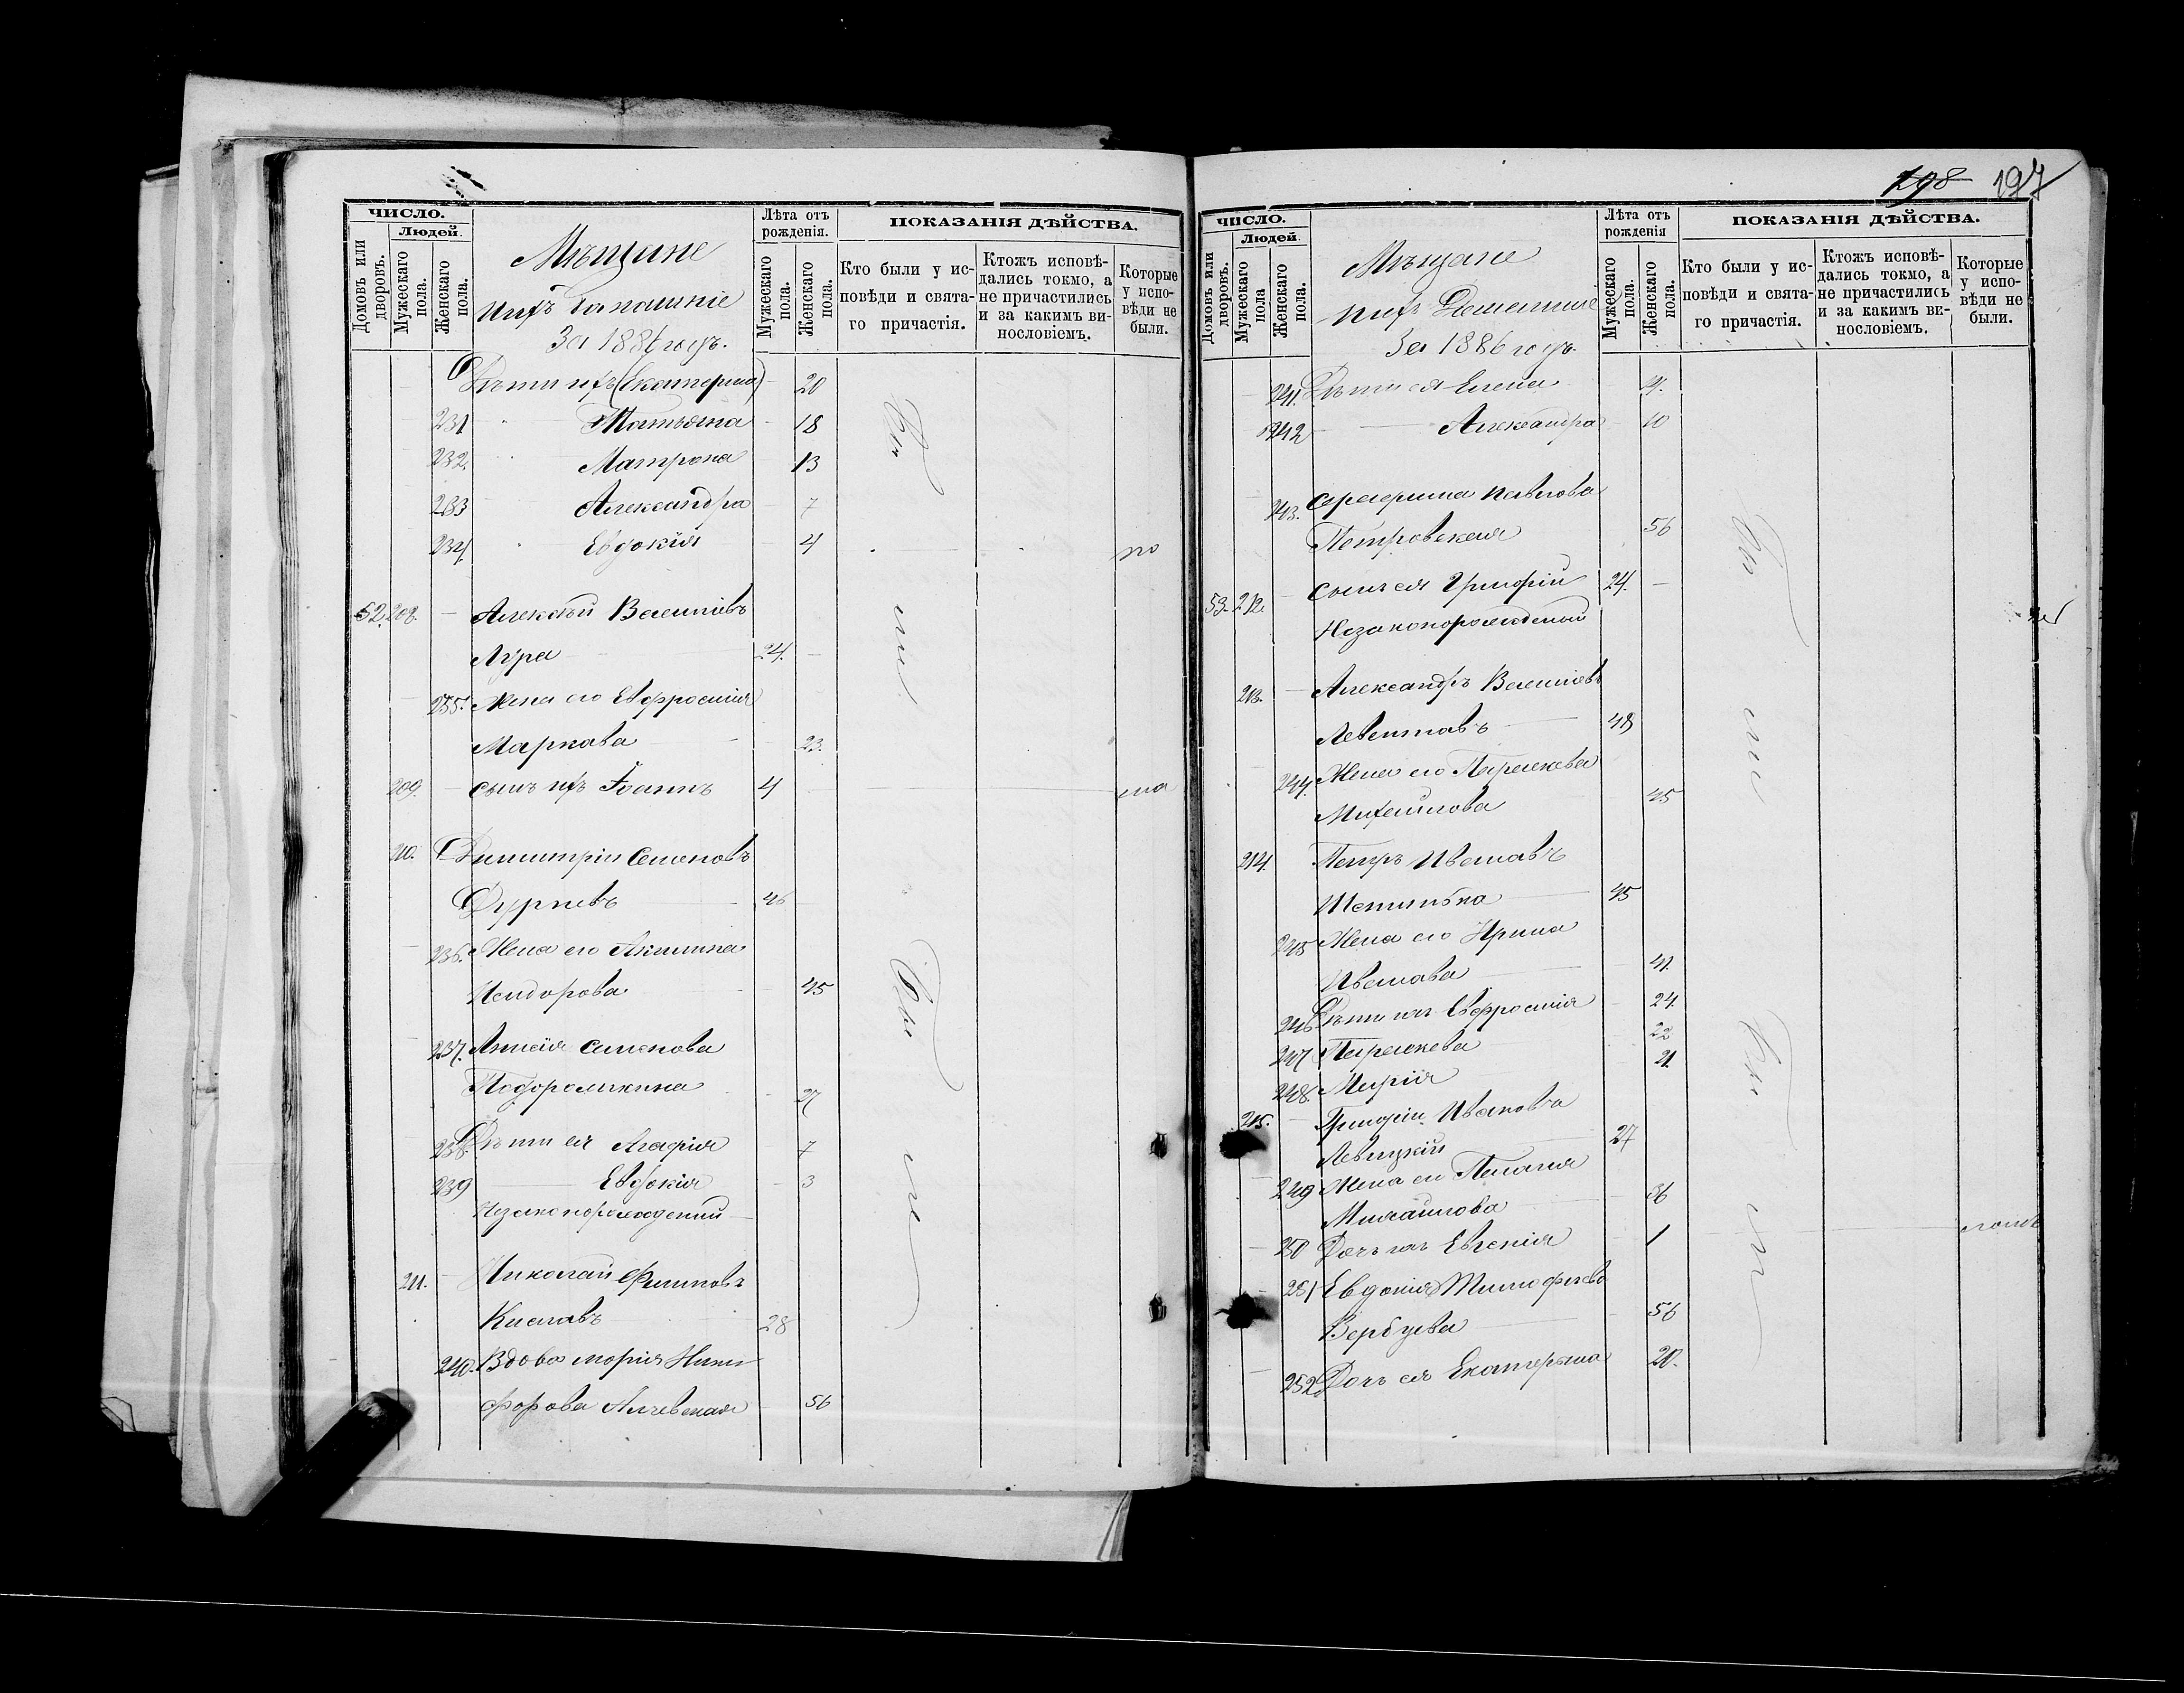 198 197
ЧИСЛО.
Людей.
Домовъ или дворовъ.
Мужескаго пола.
Женскаго пола.
Мѣщане
ихъ Домашніе
За 1886 годъ.
Лѣта отъ рожденія.
Мужескаго пола.
Женскаго пола.
ПОКАЗАНІЯ ДѢЙСТВА.
Кто были у исповѣди и святаго причастія.
Ктожъ исповѣдались токмо, а не причастились и за какимъ винословіемъ.
Которые у исповѣди не были.
Дѣти ихъ (Екатерина) 20
231 Татьяна 18
232. Матрона 13
233 Александра 7
234. Евдокія 4 по
52. 208. Алексѣй Василіевъ
24.
235. Жена его Евфросинія
Маркова 23.
209. сынъ ихъ Іоаннъ 4
210. Димитрій Семеновъ
46
236. Жена его Акилина
45
237. Анисія Симонова
27
238. Дѣти ея Агафія 7
239 Евдокія 3
Незаконорожденни
211. Николай Филиповъ
Кисловъ 28
240. Вдова Марія Ники
форова Алчевская 56
ЧИСЛО.
Людей.
Домовъ или дворовъ.
Мужескаго пола
Женскаго пола.
Мѣщане
ихъ Домашніе
За 1886 годъ.
Лѣта отъ рожденія
Мужескаго пола.
Женскаго пола.
ПОКАЗАНІЯ ДѢЙСТВА.
Кто были у исповѣди и святаго причастія.
Ктожъ исповѣдались токмо, а не причастились и за какимъ винословіемъ.
Которые у исповѣди не были.
241. Дѣти ея Елена
242 Александра 10
243. Серафима Павлова
Петровская 56
53. 212. сынъ ея Григорій 24.
Незаконорожденой
213. Александръ Василіевъ
48
244. Жена его Параскева
Михаилова 45
214. Петръ Ивановъ
45
245 Жена его Ирина
Иванова 41.
246 Дѣти ихъ Евфросинія 24.
247 Параскева 22
248. Марія 21
215. Григорій Ивановъ
Левицкій 27
249 Жена его Пелагія
Михаилова 36
250 Дочь ихъ Евгенія 1
251 Евдокія Тимофѣева
56
252 Дочь ея Екатерина 20.
Были